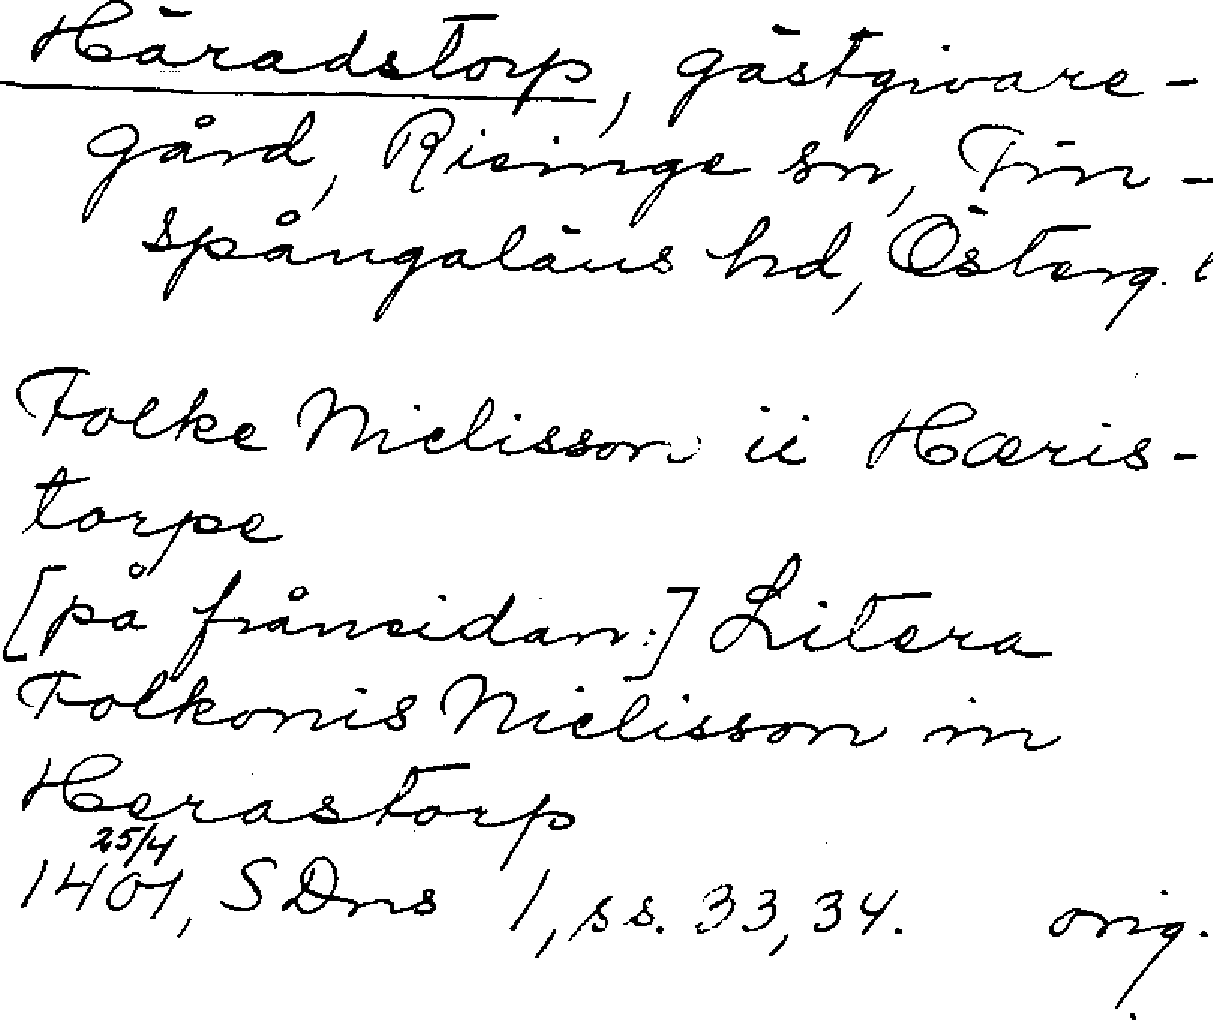 Häradstorp, gästgivare-
gård, Risinge sn, Fin-
spångaläns hd, Österg. l
Folke Nielisson ii Hæris-
torpe
[på frånsidan:] Litera
Folkonis Nielisson in
Herastorp
25/4
1401, SDns 1, ss. 33, 34. orig.